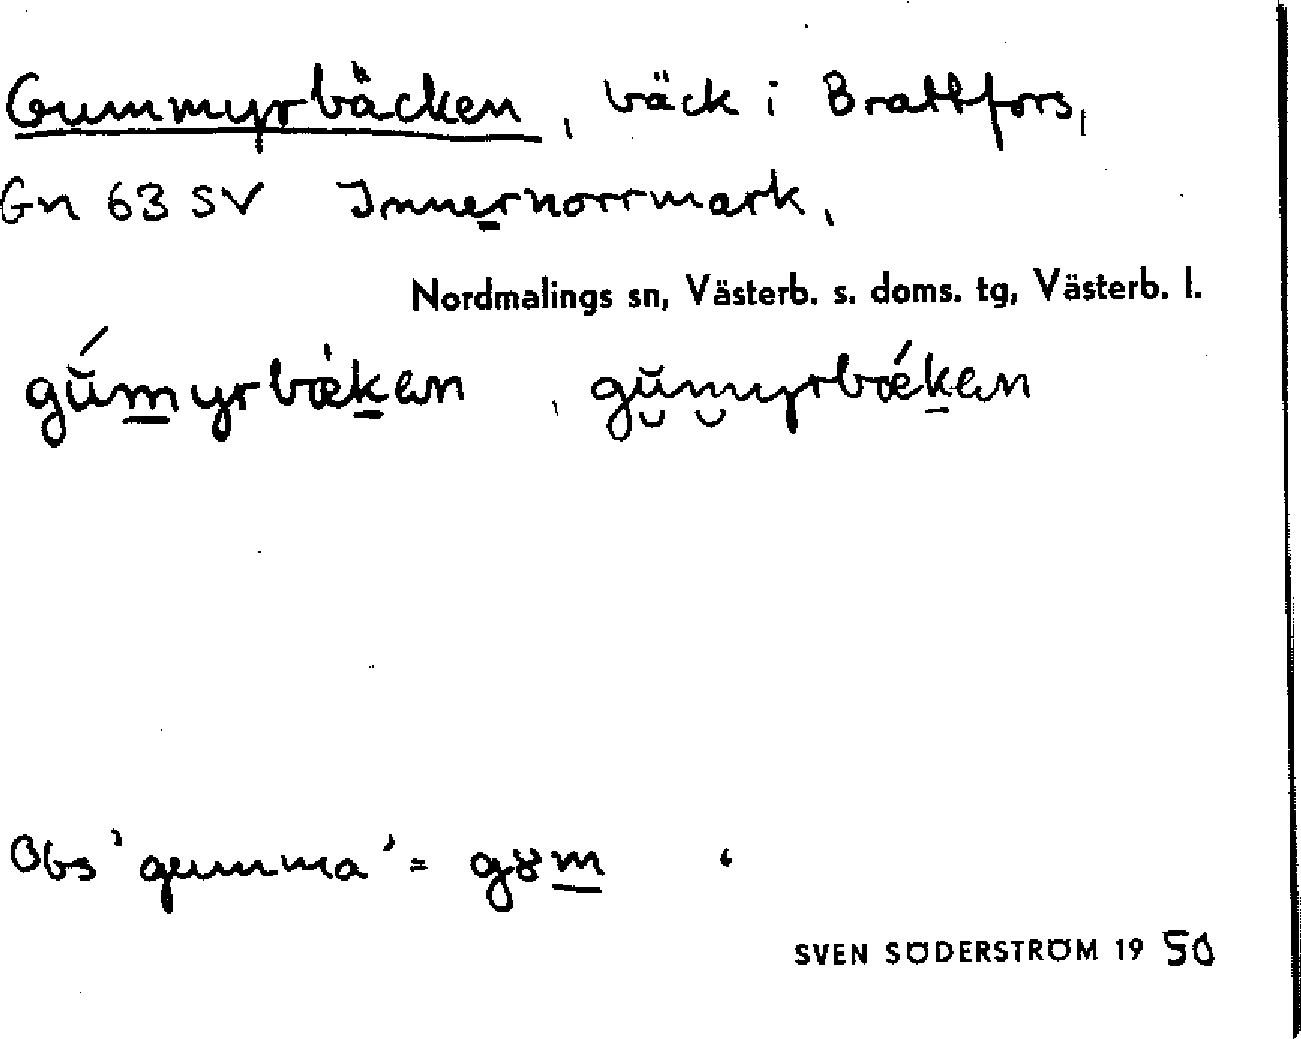 Gummyrbäcken, bäck i Brattfors,
Gn 63 SV Innernorrmark,
Nordmalings sn, Västerb. s. doms. tg, Västerb. l.
gŭ́myrbæ̀ken, gŭmyrbǽken
Obs 'gumma' = gɤm
SVEN SÖDERSTRÖM 1950